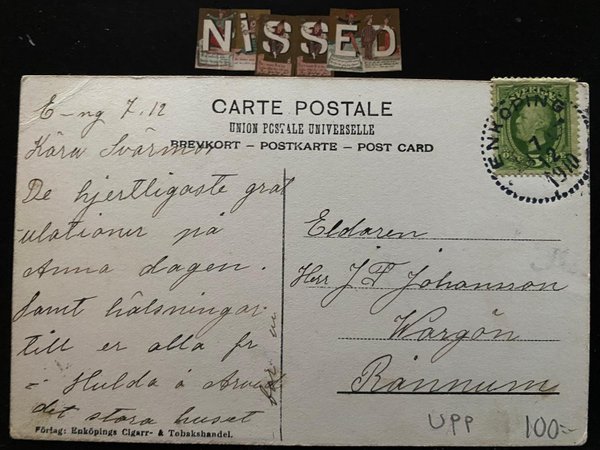 NiSSED
CARTE POSTALE
UNION POSTALE UNIVERSELLE
BREVKORT – POSTKARTE – POST CARD
SVERIGE
ENKÖPING
7
12
1910
E-ng 7.12
Kära Svärmor
De hjertligaste grat
ulationer på
Anna dagen.
Samt hälsningar
till er alla fr
= Hulda å Arvid
det stora huset
Eldaren
Herr J F Johansson
Wargön
Rånnum
UPP 100:-
Förlag: Enköpings Cigarr- & Tobakshandel.